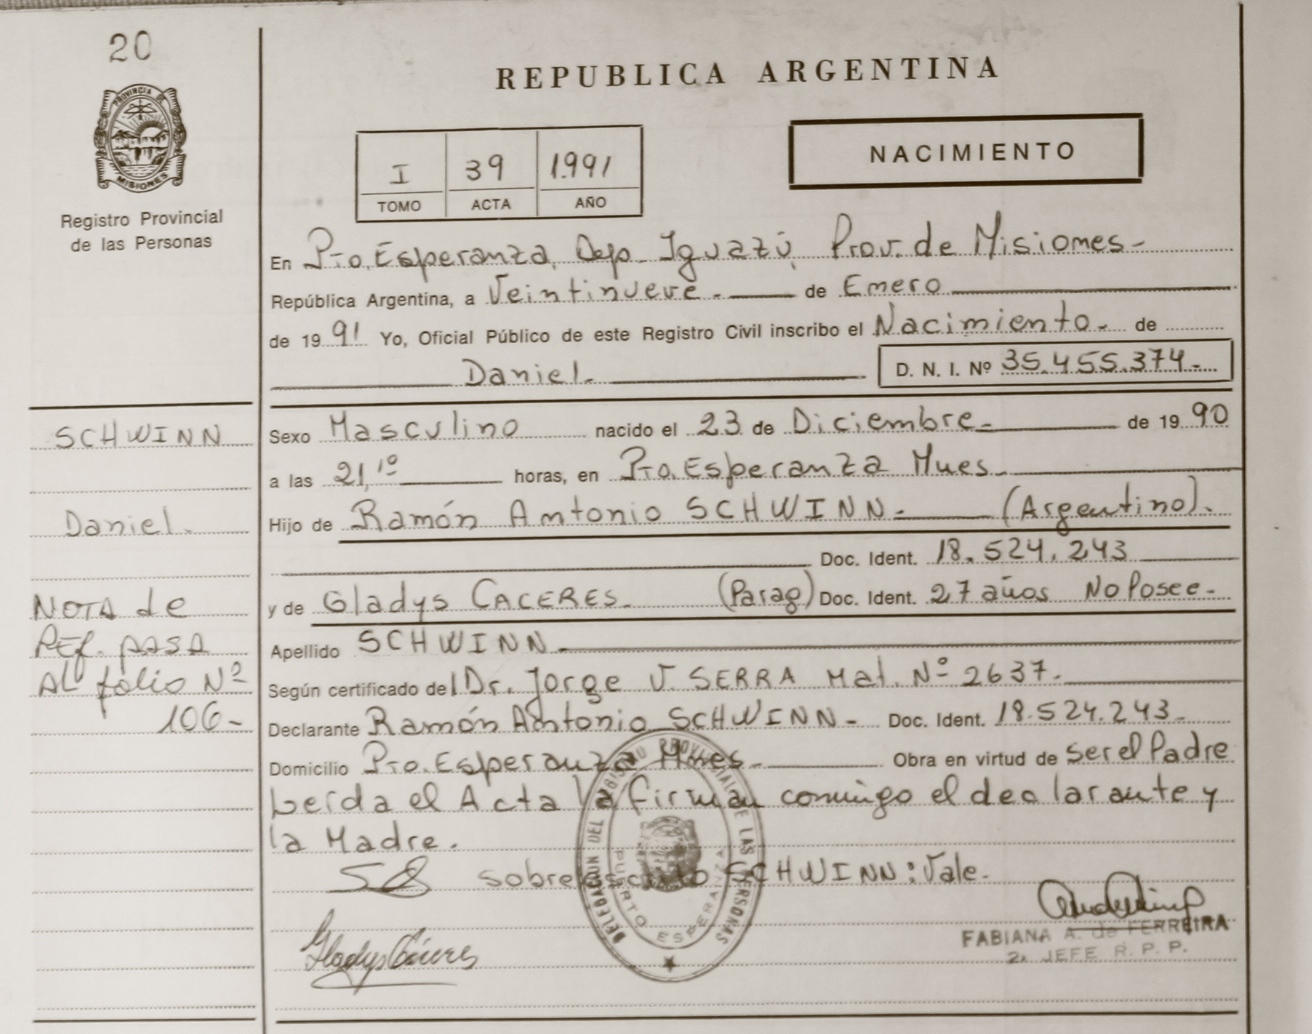 20
PROVINCIA DE
MISIONES
Registro Provincial
de las Personas
REPUBLICA ARGENTINA
I 39 1.991
TOMO ACTA AÑO
NACIMIENTO
En Pto. Esperanza, Dep. Iguazú, Prov. de Misiones-
República Argentina, a Veintinueve.- de Enero
de 19 91 Yo, Oficial Público de este Registro Civil inscribo el Nacimiento.- de
Daniel.-
D. N. I. Nº 35.455.374.-
Sexo Masculino nacido el 23 de Diciembre.- de 19 90
a las 21,10 horas, en Pto. Esperanza Mnes.
Hijo de Ramón Antonio SCHWINN.- (Argentino).-
Doc. Ident. 18.524.243
y de Gladys CACERES. (Parag) Doc. Ident. 27 años No Posee.-
Apellido SCHWINN.-
Según certificado del Dr. Jorge V SERRA Mat. Nº 2637.-
Declarante Ramón Antonio SCHWINN.- Doc. Ident. 18.524.243.-
Domicilio Pto. Esperanza Mnes.- Obra en virtud de Ser el Padre
Leída el Acta la firman conmigo el declarante y
la Madre.
Sobreescrito SCHWINN: Vale.
Gladys Cáceres
DELEGACION DEL REGISTRO PROVINCIAL DE LAS PERSONAS
PUERTO ESPERANZA
FABIANA A. de FERREIRA
2a JEFE R. P. P.
SCHWINN
Daniel.
NOTA de
REF. pASA
AL folio Nº
106-